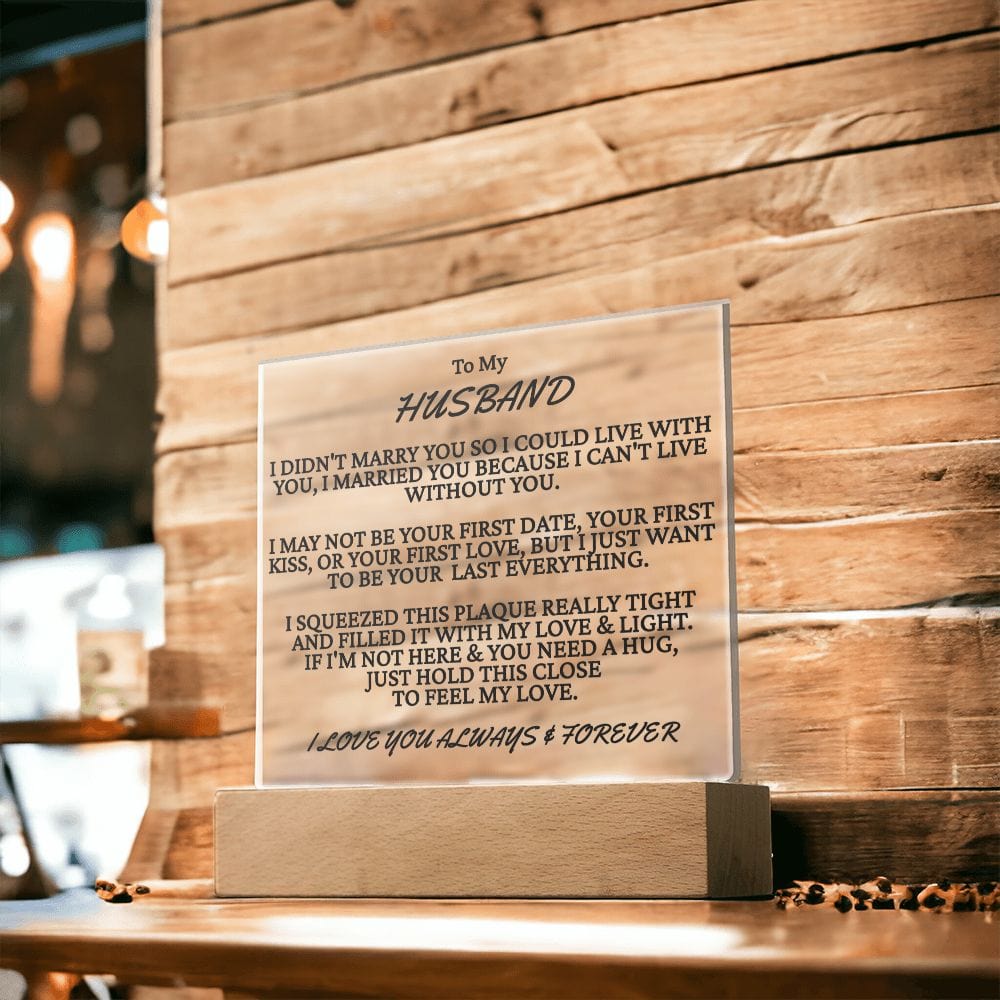 To My
HUSBAND
I DIDN'T MARRY YOU SO I COULD LIVE WITH
YOU, I MARRIED YOU BECAUSE I CAN'T LIVE
WITHOUT YOU.
I MAY NOT BE YOUR FIRST DATE, YOUR FIRST
KISS, OR YOUR FIRST LOVE, BUT I JUST WANT
TO BE YOUR LAST EVERYTHING.
I SQUEEZED THIS PLAQUE REALLY TIGHT
AND FILLED IT WITH MY LOVE & LIGHT.
IF I'M NOT HERE & YOU NEED A HUG,
JUST HOLD THIS CLOSE
TO FEEL MY LOVE.
I LOVE YOU ALWAYS & FOREVER